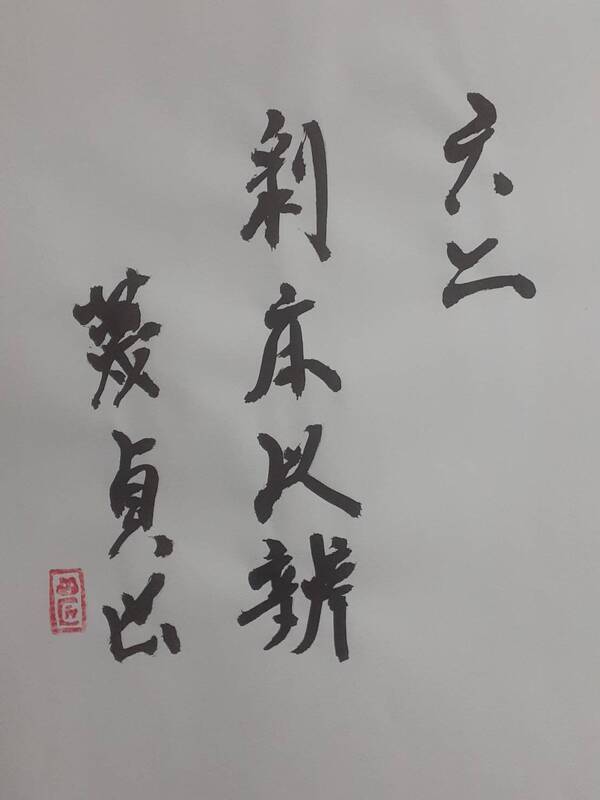 六二
剝床以辨
蔑貞凶